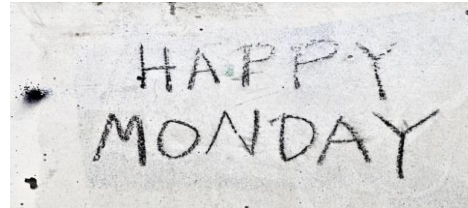 HAPPY
MONDAY